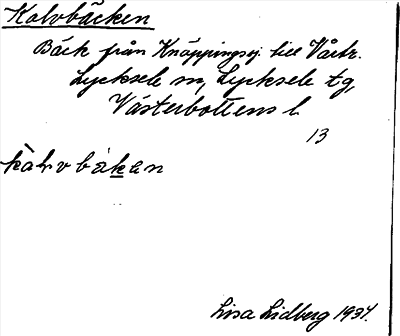 Kalvbäcken
Bäck från Knäppingsj. till Vårtr.
Lycksele sn, Lycksele tg,
Västerbottens l.
13
kàlvbäkan
Lisa Lidberg 1934.